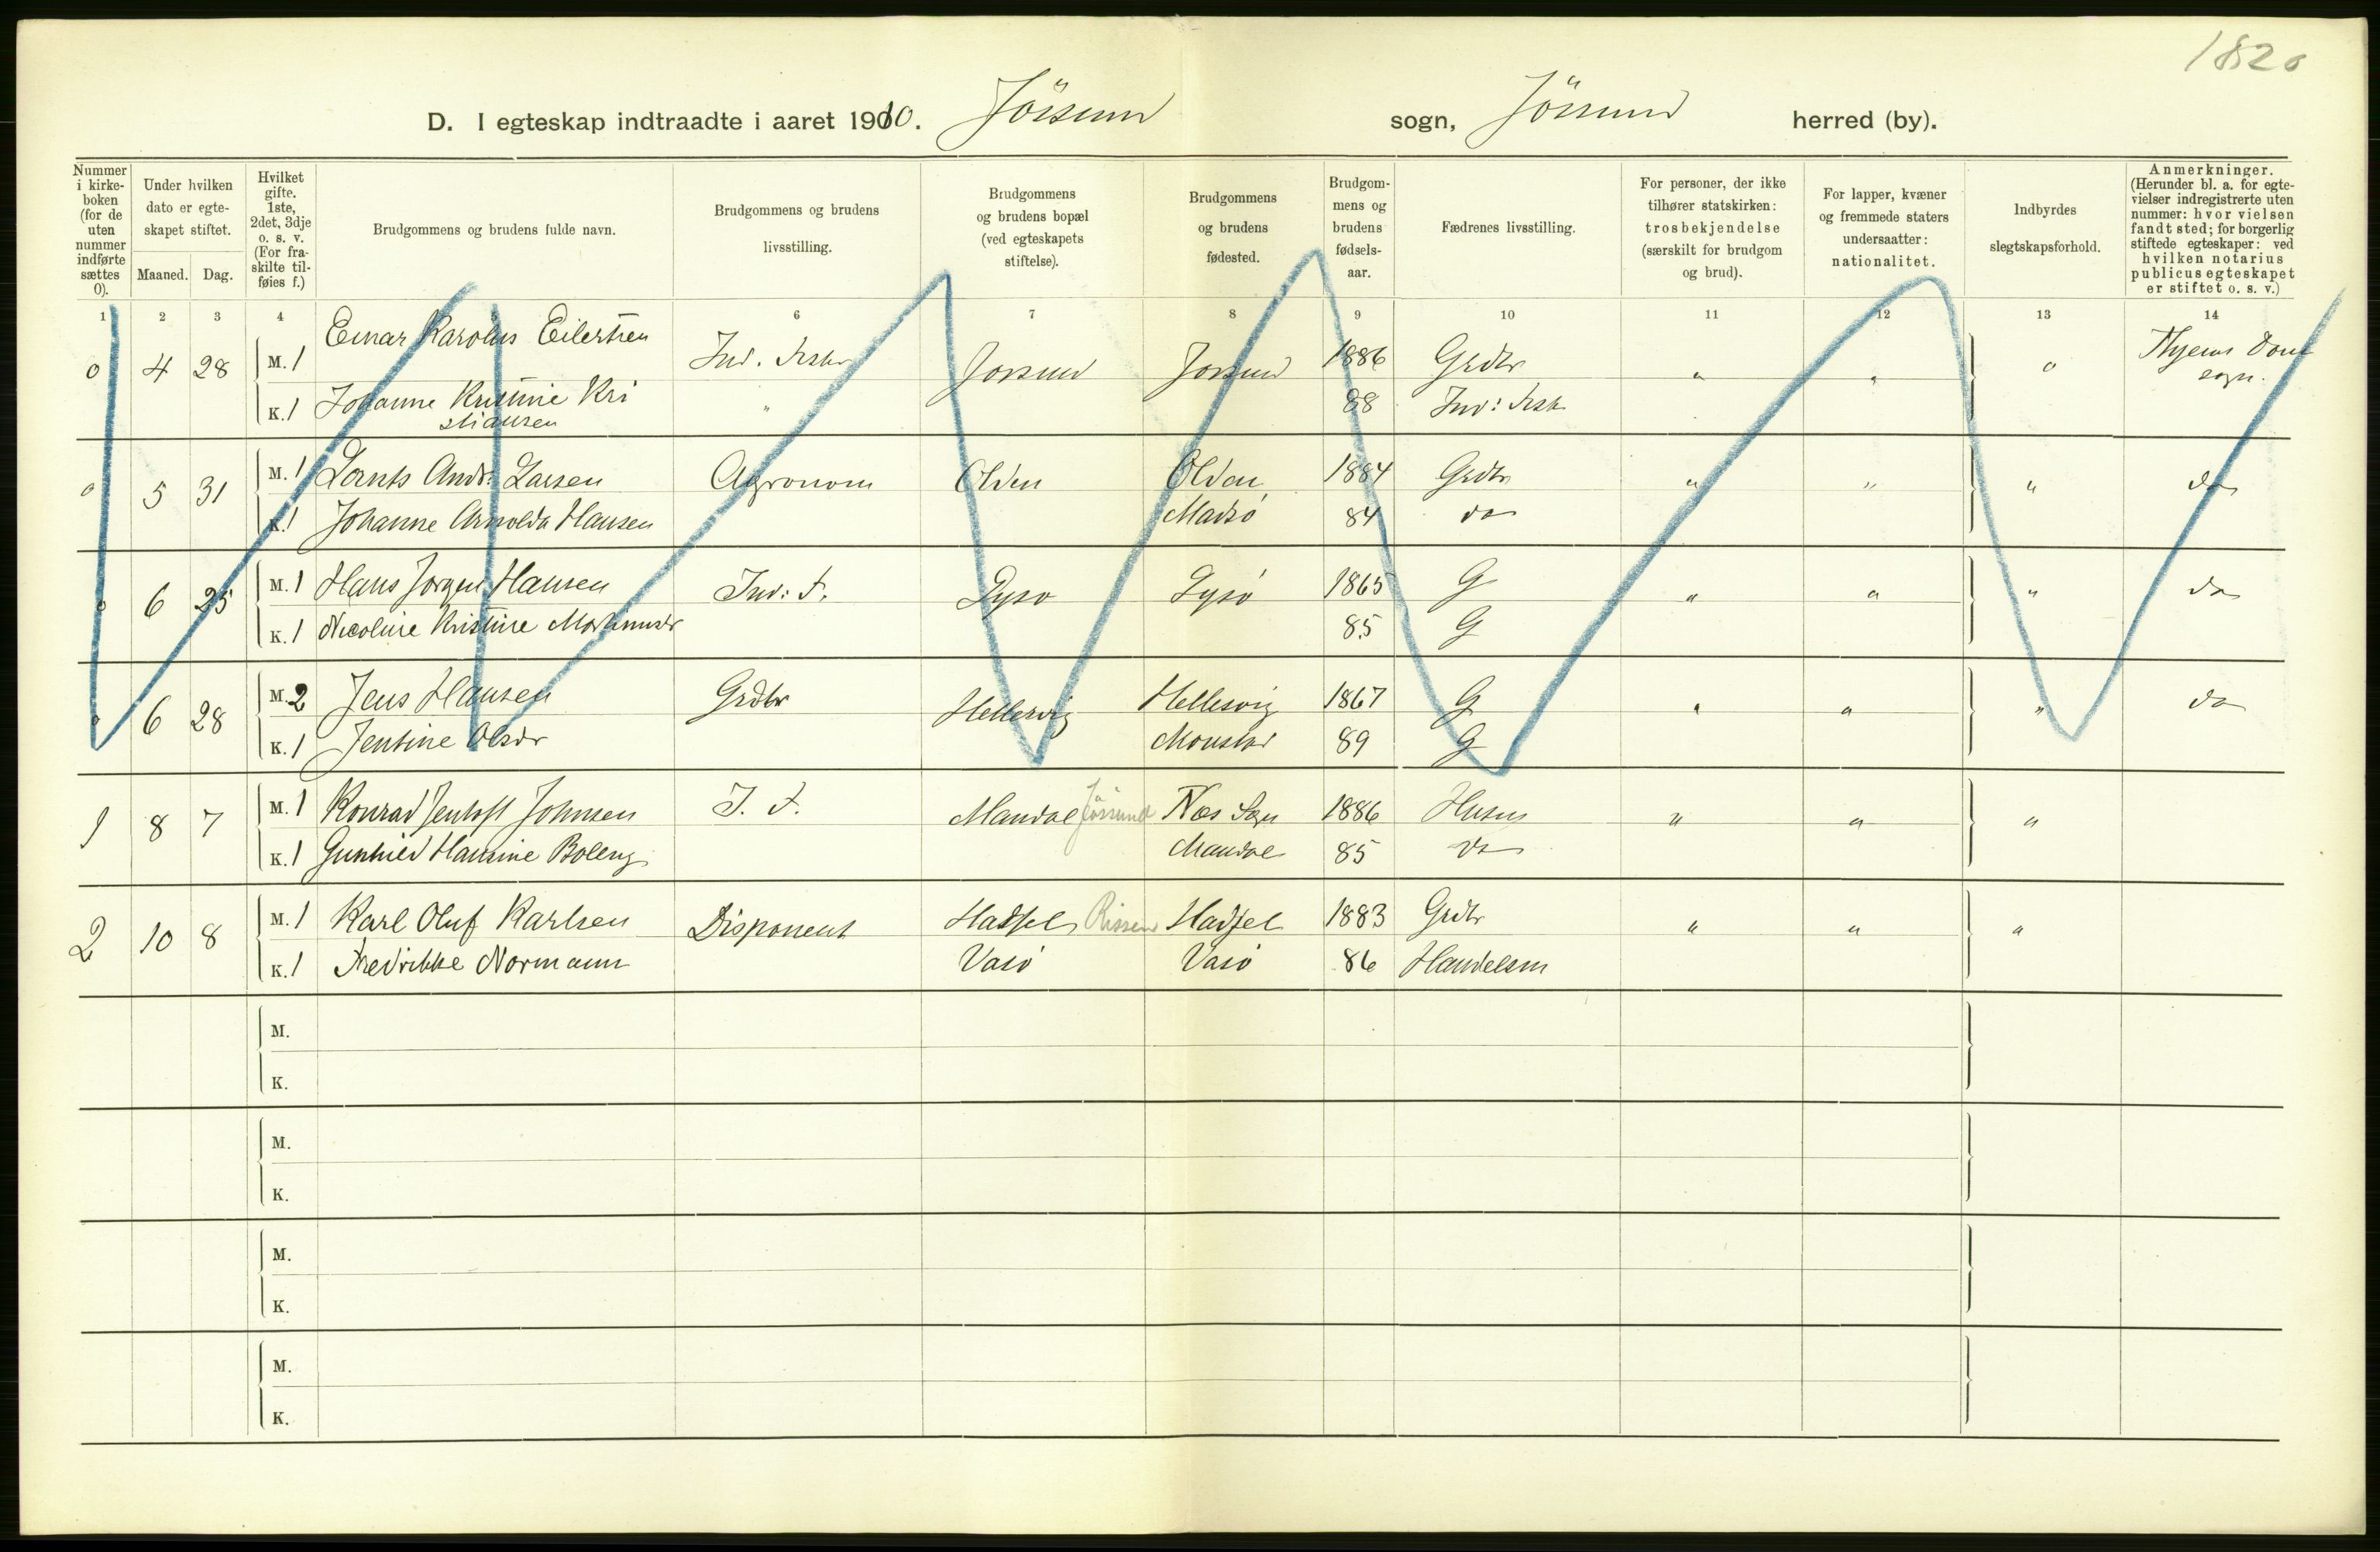 1820
D. I egteskap indtraadte i aaret 1910. Jössund sogn, Jössund herred (by).
Nummer i kirke-boken (for de uten nummer indførte sættes 0).
Under hvilken dato er egte-skapet stiftet.
Maaned. Dag.
Hvilket gifte. 1ste, 2det, 3dje o. s. v. (For fra-skilte til-føies f.)
Brudgommens og brudens fulde navn.
Brudgommens og brudens livsstilling.
Brudgommens og brudens bopæl (ved egteskapets stiftelse).
Brudgommens og brudens fødested.
Brudgom-mens og brudens fødsels-aar.
Fædrenes livsstilling.
For personer, der ikke tilhører statskirken: trosbekjendelse (særskilt for brudgom og brud).
For lapper, kvæner og fremmede staters undersaatter: nationalitet.
Indbyrdes slegtskapsforhold.
Anmerkninger. (Herunder bl. a. for egte-vielser indregistrerte uten nummer: hvor vielsen fandt sted; for borgerlig stiftede egteskaper: ved hvilken notarius publicus egteskapet er stiftet o. s. v.)
1 2 3 4 5 6 7 8 9 10 11 12 13 14
0 4 28 M. 1 Einar Karolus Eilertsen Ind. Fisker Jossund Jossund 1886 Grdbr " " 0 Dom sogn.
K. 1 Johanne Kristine Kri " 88 Ind: Fisk
stiansen
0 5 31 M. 1 Andr: Larsen Agronom Olden Olden 1884 Grdbr " " " do
K. 1 Johanne Arnolda Hansen Madsö 84 do
0 6 25 M. 1 Hans Jörgen Hansen Ind: F. Lyso Lysö 1865 G " " " do
K. 1 Nicoline Kristine 85 G
0 6 28 M. 2 Jens Hansen Grdbr Hellesvig Hellesvig 1867 G " " " do
K. 1 Jentine Olsdr 89 G
1 8 7 M. 1 Konrad Jentoft Johnsen I. F. Mandal Jössund Næs Sogn 1886 Husm " " "
K. 1 Gunhild Hansine Boleng Mandal 85 do
2 10 8 M. 1 Karl Oluf Karlsen Disponent Hadsel Rissen Hadsel 1883 Grdbr " " "
K. 1 Fredrikke Normann Vasö Vasö 86 Handelsm
M.
K.
M.
K.
M.
K.
M.
K.